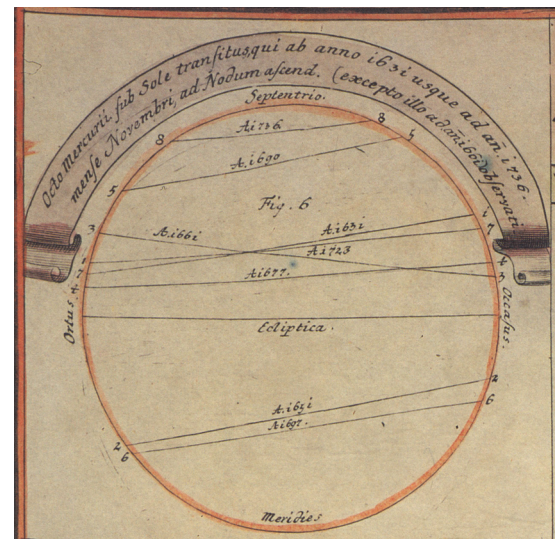 Octo Mercurii sub Sole transitus, qui ab anno 1631 usque ad añ. 1736.
mense Novembri, ad Nodum ascend. (excepto illo ad an. 1661 observati
Septentrio.
8
8
A. 1736.
5
A. 1690
5
Fig. 6
1
3
A. 1661
A. 1631
7
A. 1723
1
4
7
A. 1677
3
4
Ortus.
Occasus.
Ecliptica.
2
A. 1651
6
A. 1697.
2
6
Meridies